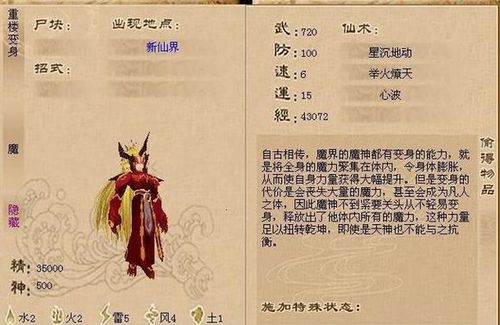 重楼变身
尸块：
出现地点：
新仙界
招式：
魔
隐藏
精：35000
神：500
水2 火2 雷5 风4 土1
武：720
防：100
速：6
運：15
經：43072
仙术：
星沉地动
举火燎天
心波
自古相传，魔界的魔神都有变身的能力，就
是将全身的魔力聚集在体内，令身体膨胀，
从而使自身力量获得大幅提升。但是变身的
代价是会丧失大量的魔力，甚至会成为凡人
之体，因此魔神不到紧要关头从不轻易变
身，释放出了他体内所有的魔力，这种力量
足以扭转乾坤，即使是天神也不能与之抗
衡。
施加特殊状态：
偷得物品